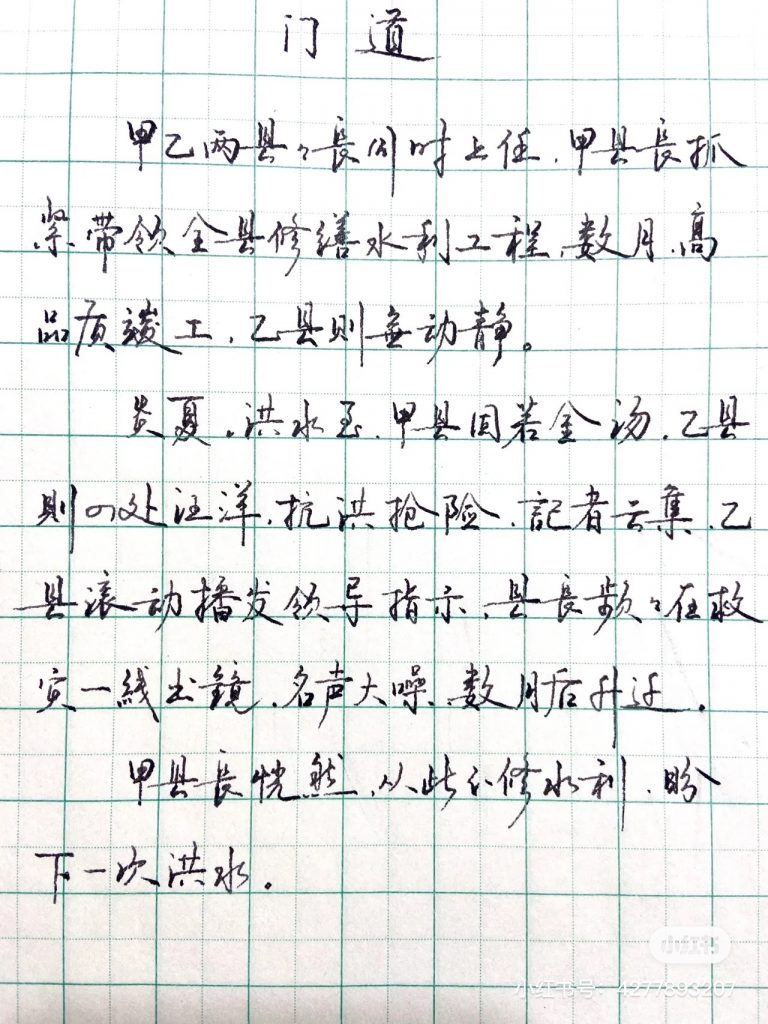 门道
甲乙两县々長同时上任,甲县長抓
紧带领全县修缮水利工程,数月,高
品质竣工,乙县则無动静。
炎夏,洪水至,甲县固若金汤,乙县
則四处汪洋,抗洪抢险,記者云集,乙
县滚动播发领导指示,县長频々在救
灾一線出鏡,名声大噪,数月后升迁。
甲县長恍然,从此不修水利,盼
下一次洪水。
小红书
小红书号:4277393207